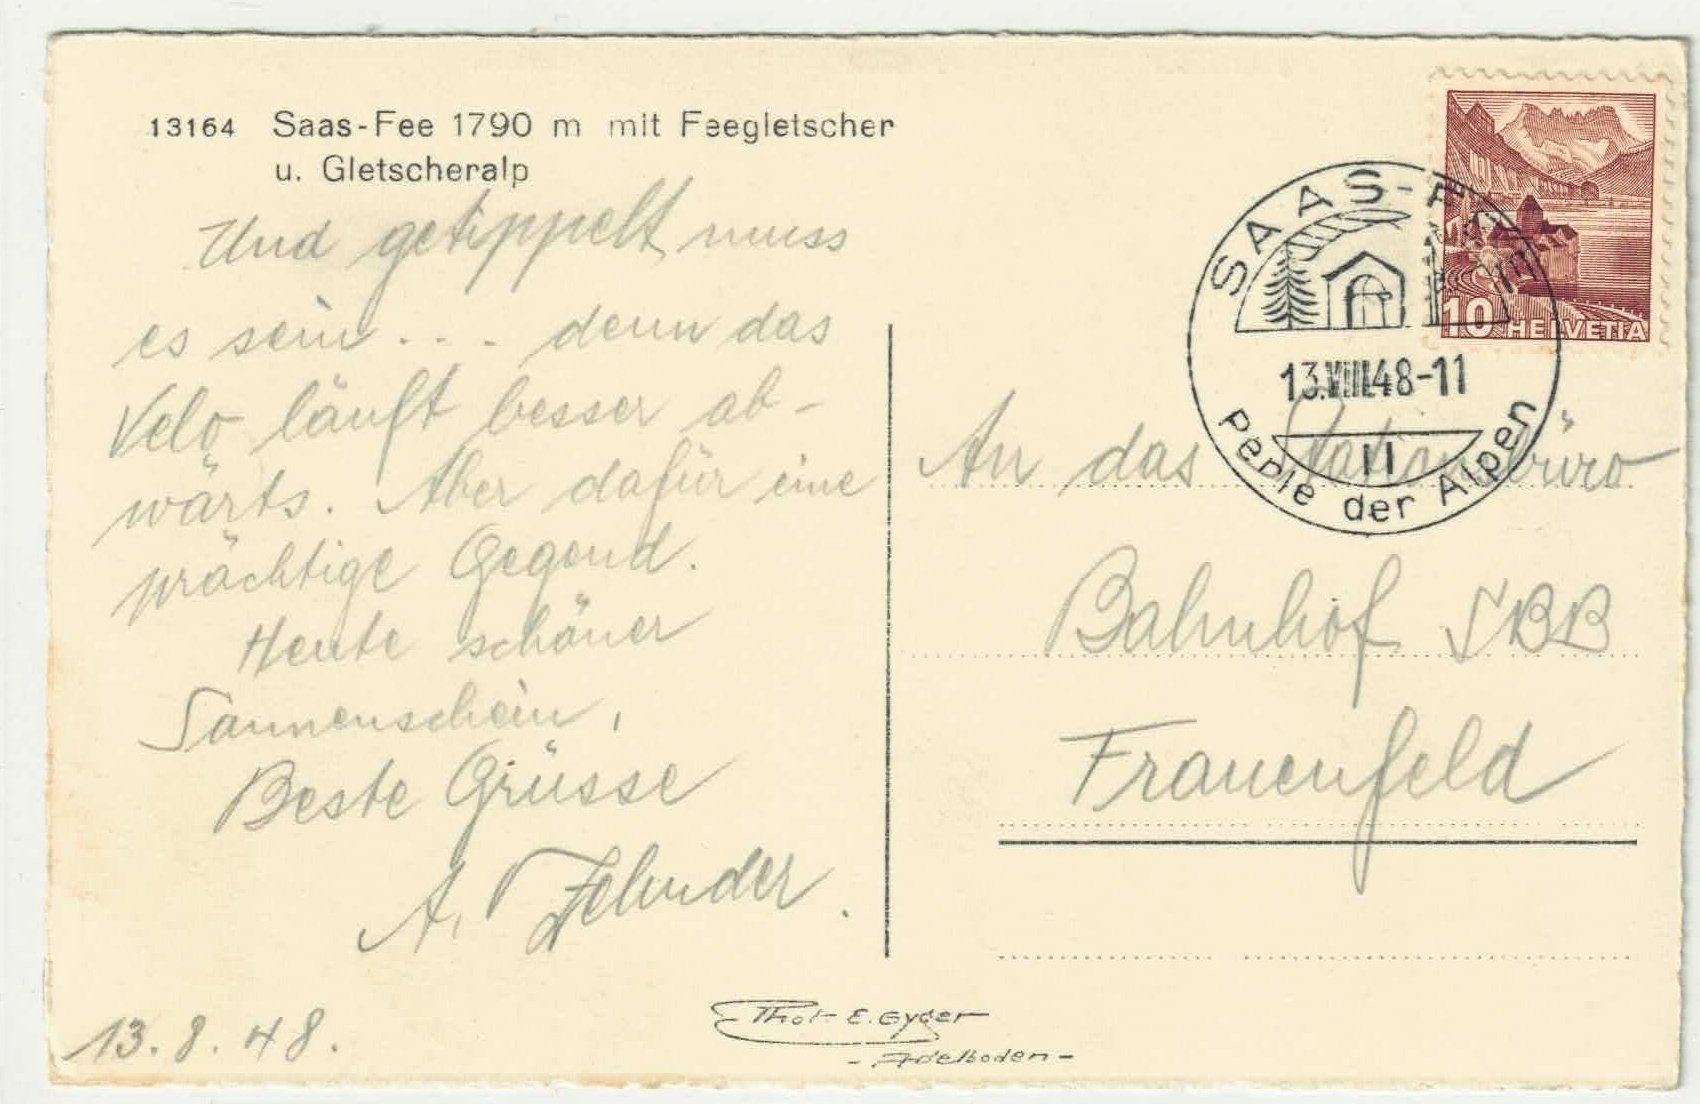 13164 Saas-Fee 1790 m mit Feegletscher
u. Gletscheralp
Und getippelt muss
es sein... denn das
Velo läuft besser ab-
wärts. Aber dafür eine
prächtige Gegend.
Heute schöner
Sonnenschein,
Beste Grüsse
A. Zehnder.
13.8.48.
Phot E. Gyger
- Adelboden -
10 HELVETIA
SAAS-FEE
13.VIII.48-11
II
Perle der Alpen
An das Stationsbüro
Bahnhof SBB
Frauenfeld